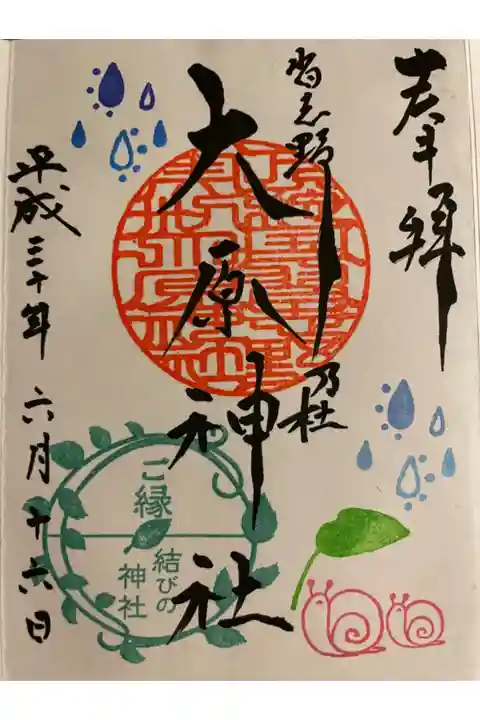 奉拝
習志野乃杜
大原神社
ご縁
結びの
神社
平成三十年六月十六日